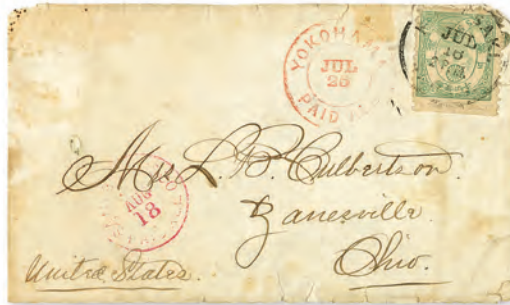 YOKOHAMA
JUL
26
PAID ALL
JUL
18
Mrs L. B. Culbertson.
Zanesville
Ohio.
AUG
18
United States.